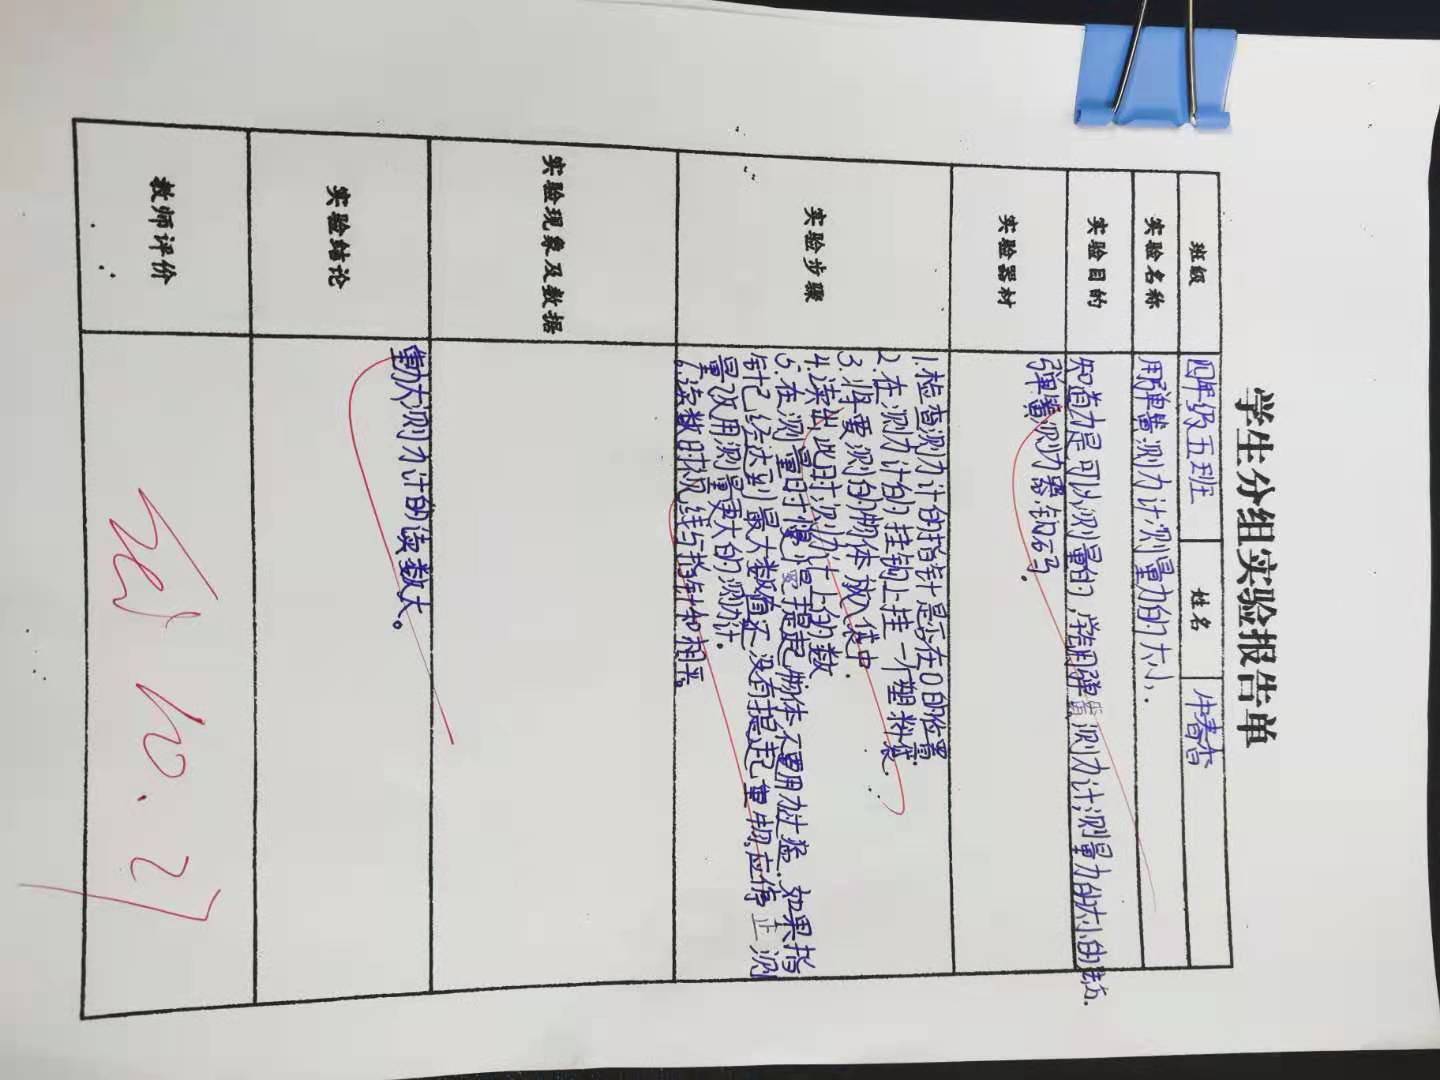 学生分组实验报告单
班级 四年级五班 姓名 牛春杏
实验名称 用弹簧测力计测量力的大小.
实验目的 知道力是可以测量的,学习用弹簧测力计测量力的大小的方法.
实验器材 弹簧测力器 钩码.
实验步骤
1.检查测力计的指针是否在0的位置
2.在测力计的挂钩上挂一个塑料袋.
3.将要测的物体放入袋中.
4.读出此时测力计上的数
5.在测量时慢慢提起物体不要用力过猛.如果指
针已经达到最大数值还没有提起重物,应停止测
量,改用测量更大的测力计.
6.读数时视线与指针相平。
实验现象及数据
实验结论 重力大测力计的读数大。
教师评价
10.27